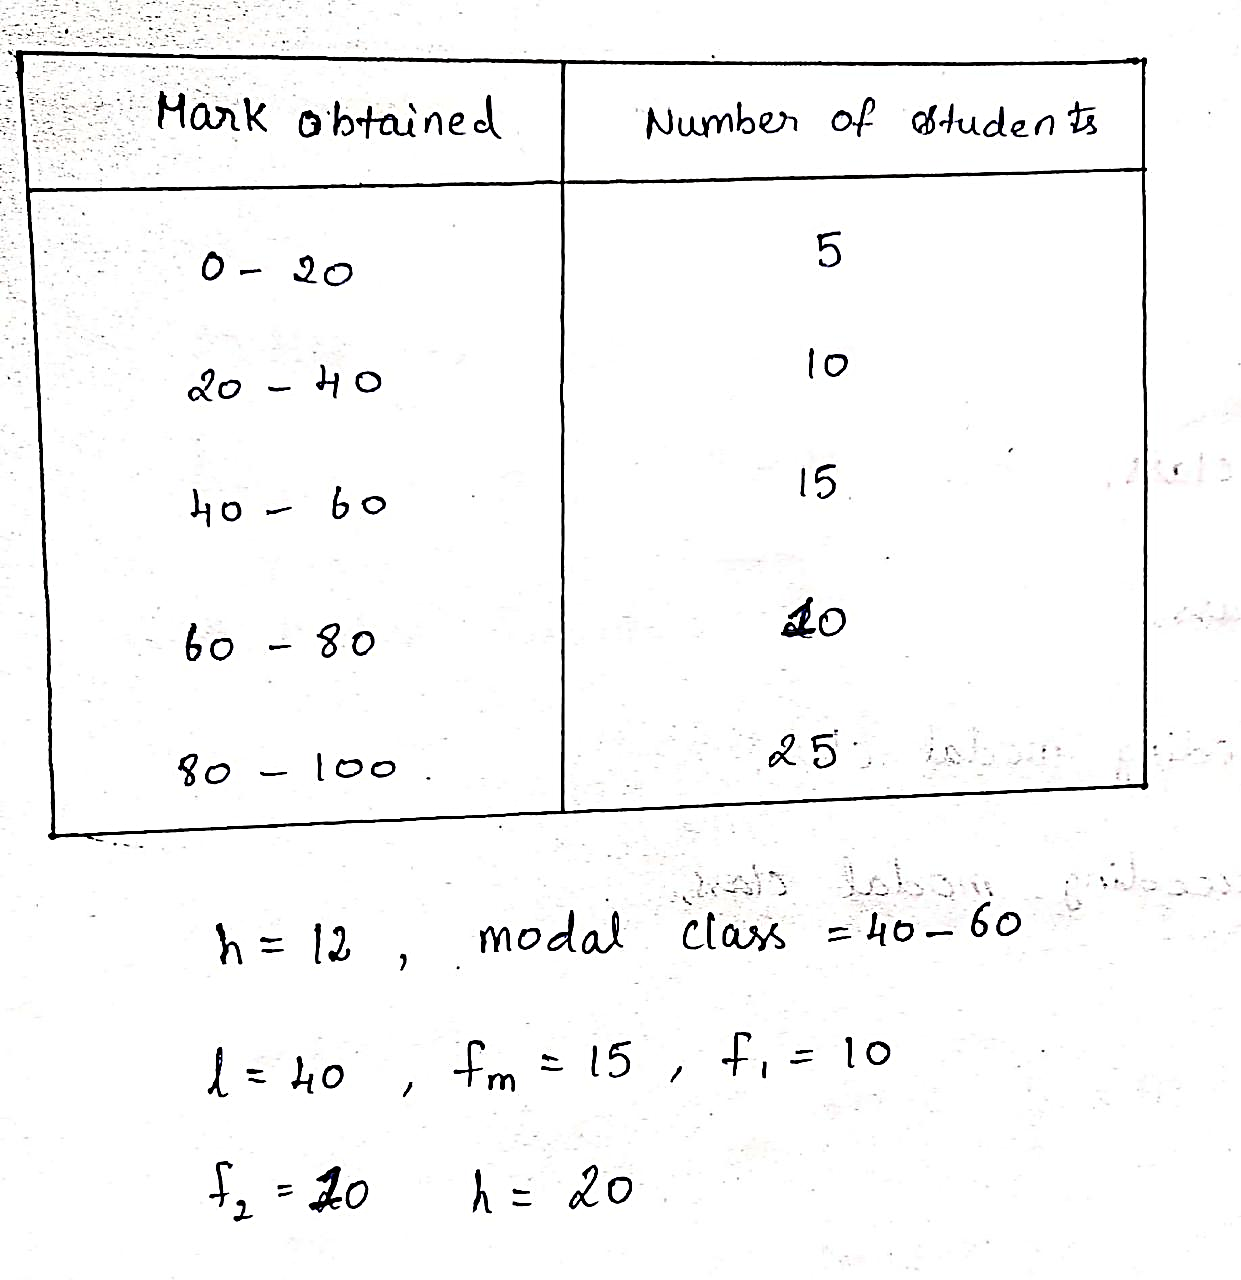 Mark obtained Number of students
0 - 20 5
20 - 40 10
40 - 60 15
60 - 80
80 - 100 25
h = 12 , modal class = 40 - 60
l = 40 , fm = 15 , f1 = 10
f2 = h = 20